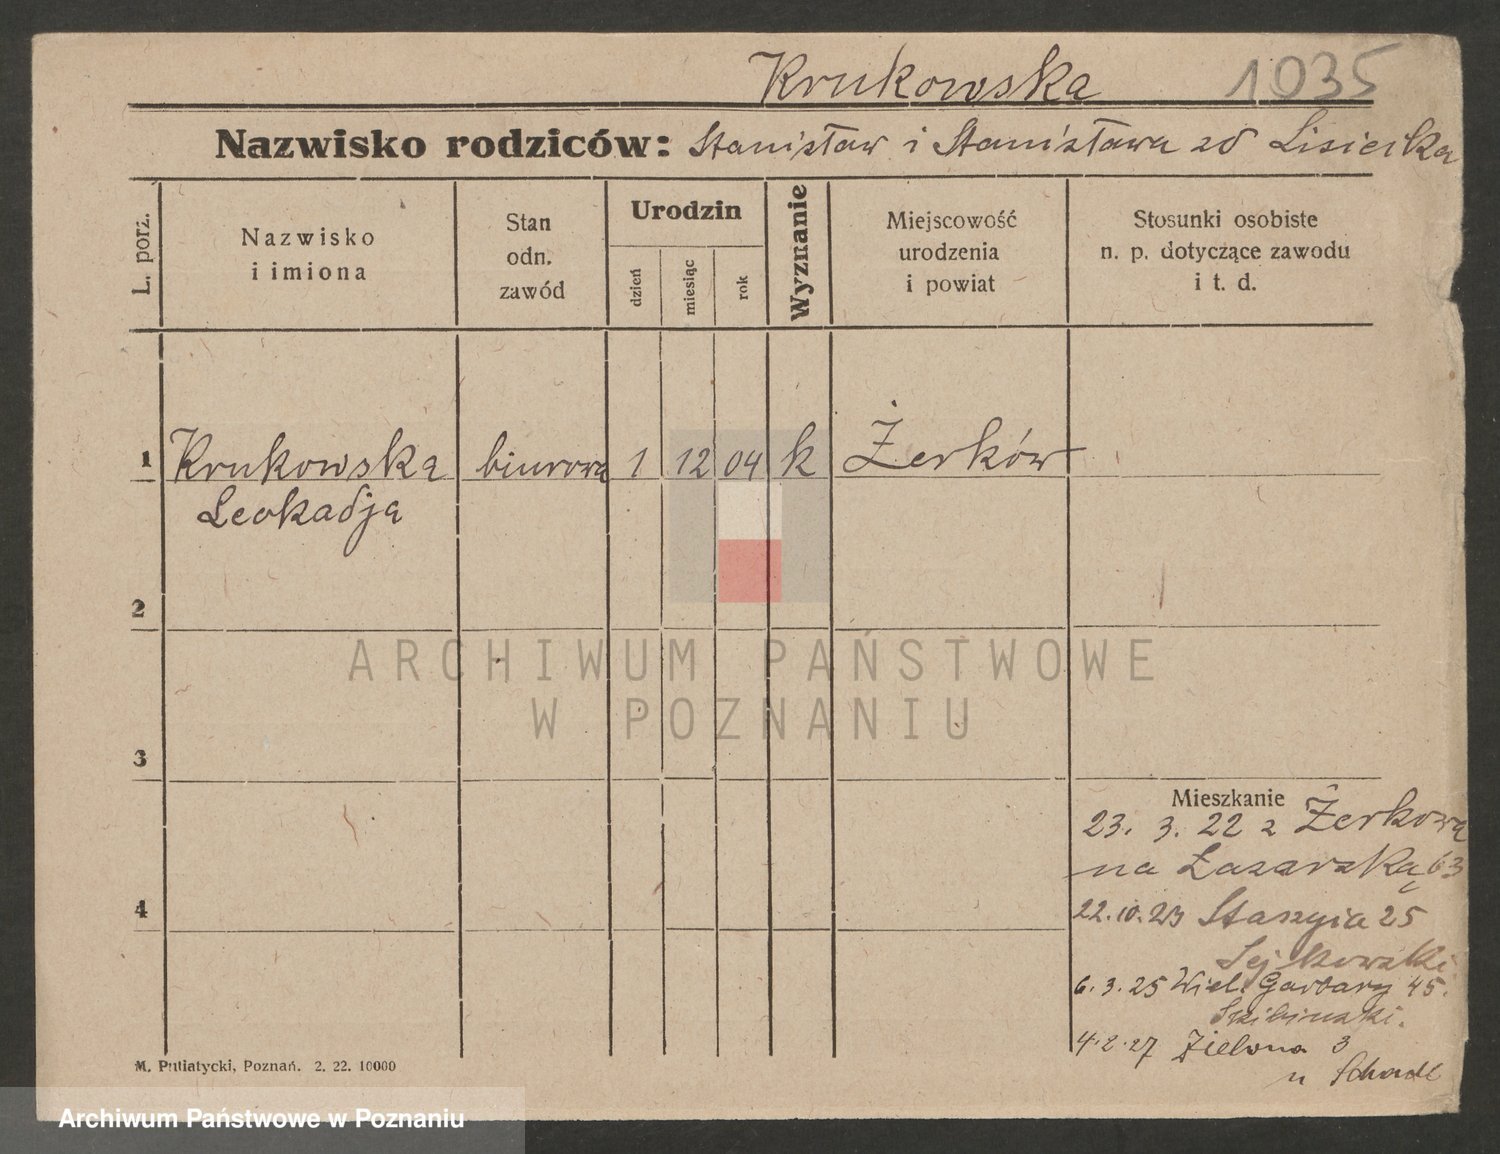 Krukowska 1035
Nazwisko rodziców: Stanisław i Stanisława zd Lisiecka
L. porz.
Nazwisko
i imiona
Stan
odn.
zawód
Urodzin
dzień
miesiąc
rok
Wyznanie
Miejscowość
urodzenia
i powiat
Stosunki osobiste
n. p. dotyczące zawodu
i t. d.
1 Krukowska biurowa 1 12 04 k Żerków
Leokadja
2
ARCHIWUM PAŃSTWOWE
W POZNANIU
3
Mieszkanie
23. 3. 22 z Żerkowa
na Łazarską 63
4
22.10.23 Staszyca 25
6.3.25 Wiel. Garbary 45.
4.2.27 Zielona 3
u
M. Putiatycki, Poznań. 2. 22. 10000
Archiwum Państwowe w Poznaniu